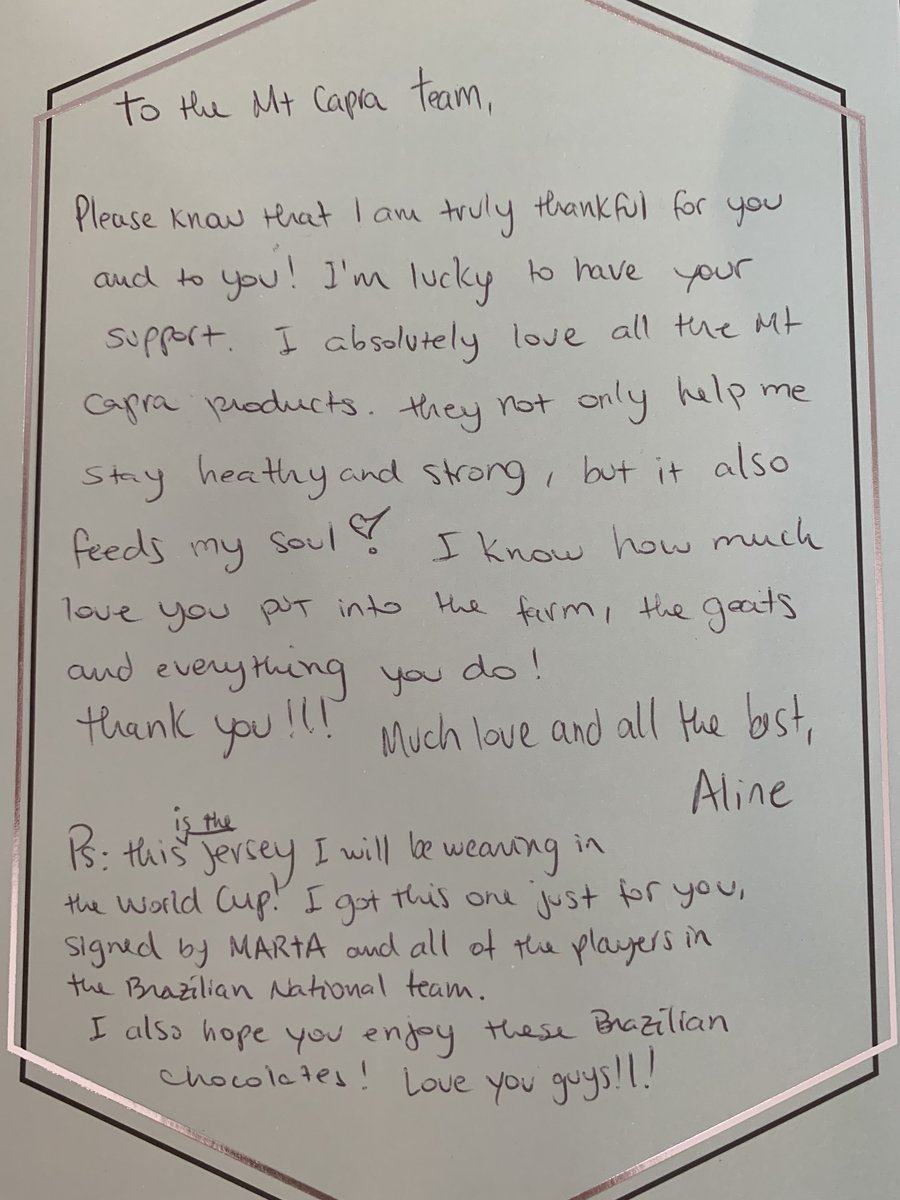 To the Mt Capra team,
Please know that I am truly thankful for you
and to you! I'm lucky to have your
support. I absolutely love all the Mt
Capra products. they not only help me
stay heathy and strong, but it also
feeds my soul! I know how much
love you put into the farm, the goats
and everything you do!
thank you!!! Much love and all the best,
Aline
is the
Ps: this jersey I will be wearing in
the World Cup! I got this one just for you,
signed by MARtA and all of the players in
the Brazilian National team.
I also hope you enjoy these Brazilian
chocolates! Love you guys!!!